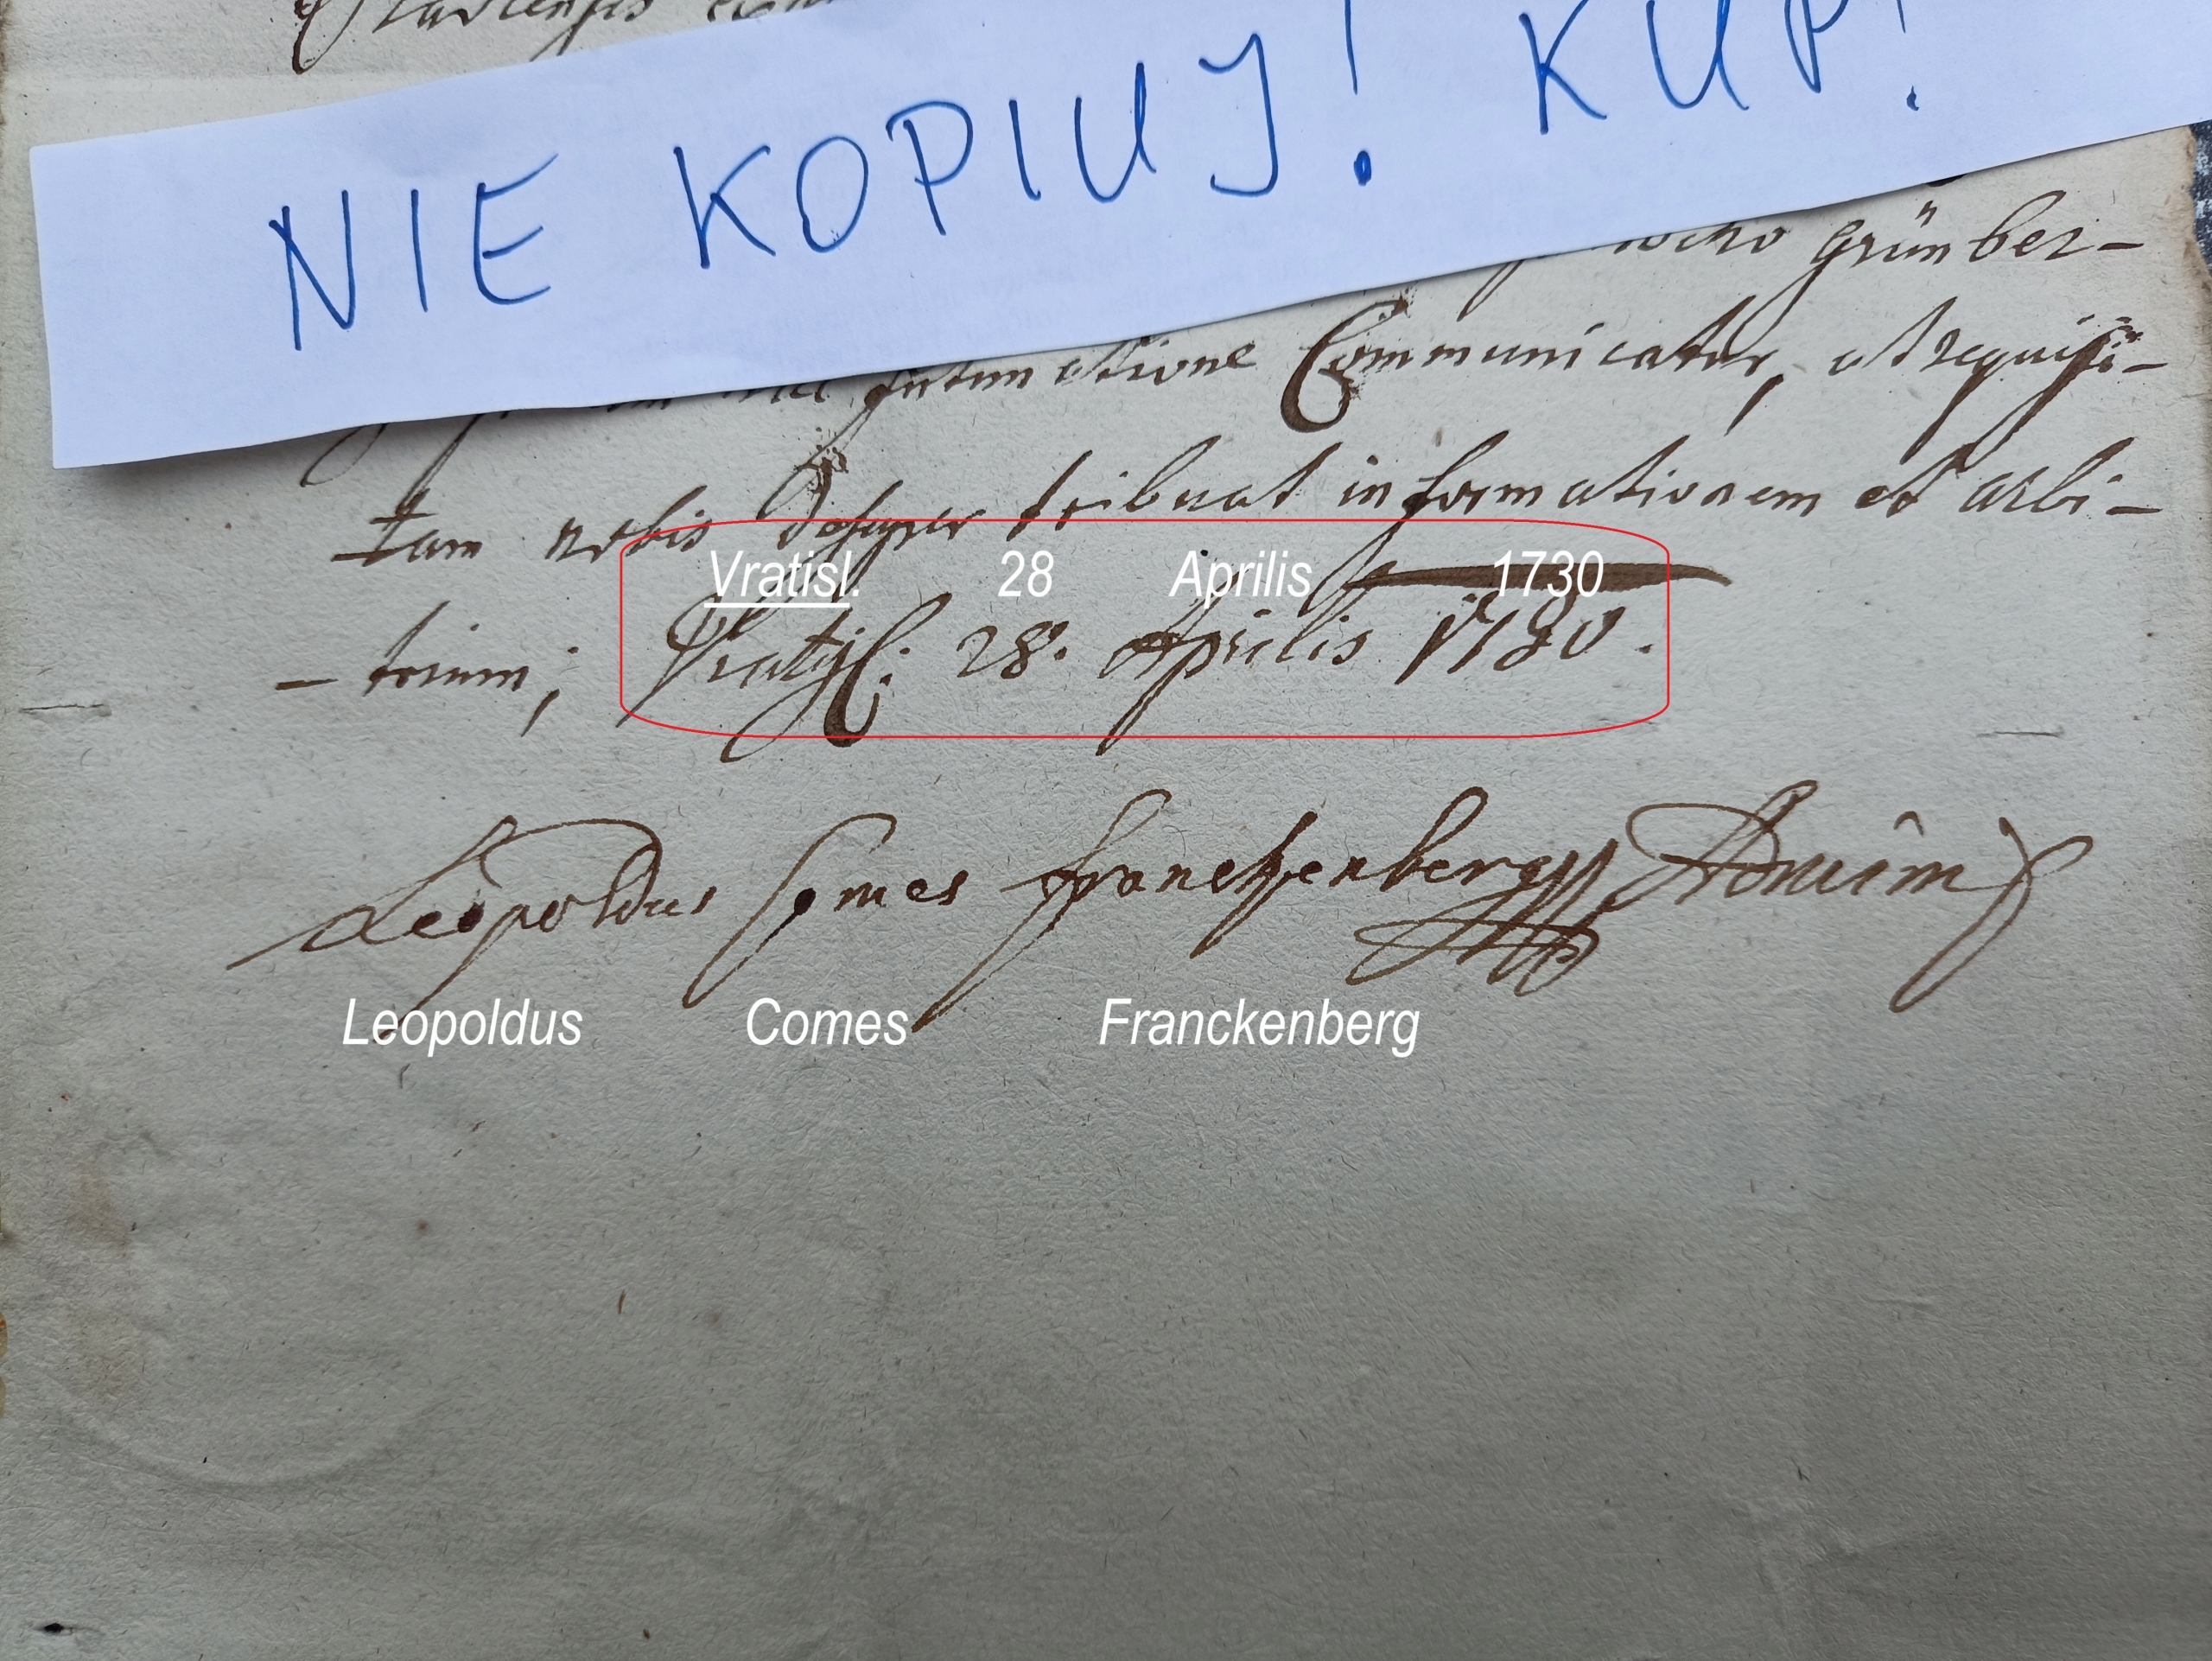 NIE KOPIUJ! KUP!
Grünber-
Communicatur, ut requisi-
-tam nobis desuper tribuat informationem et arbi-
Vratisl. 28 Aprilis 1730
-trium; Vratisl. 28. Aprilis 1730.
Leopoldus Comes Franckenberg
Leopoldus Comes Franckenberg